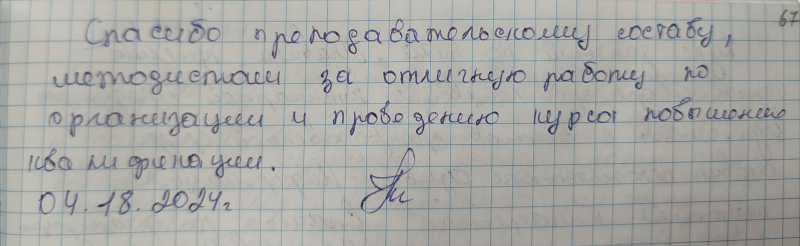 67
Спасибо преподавательскому составу,
методистам за отличную работу по
организации и проведению курса повышению
квалификации.
04.18.2024г